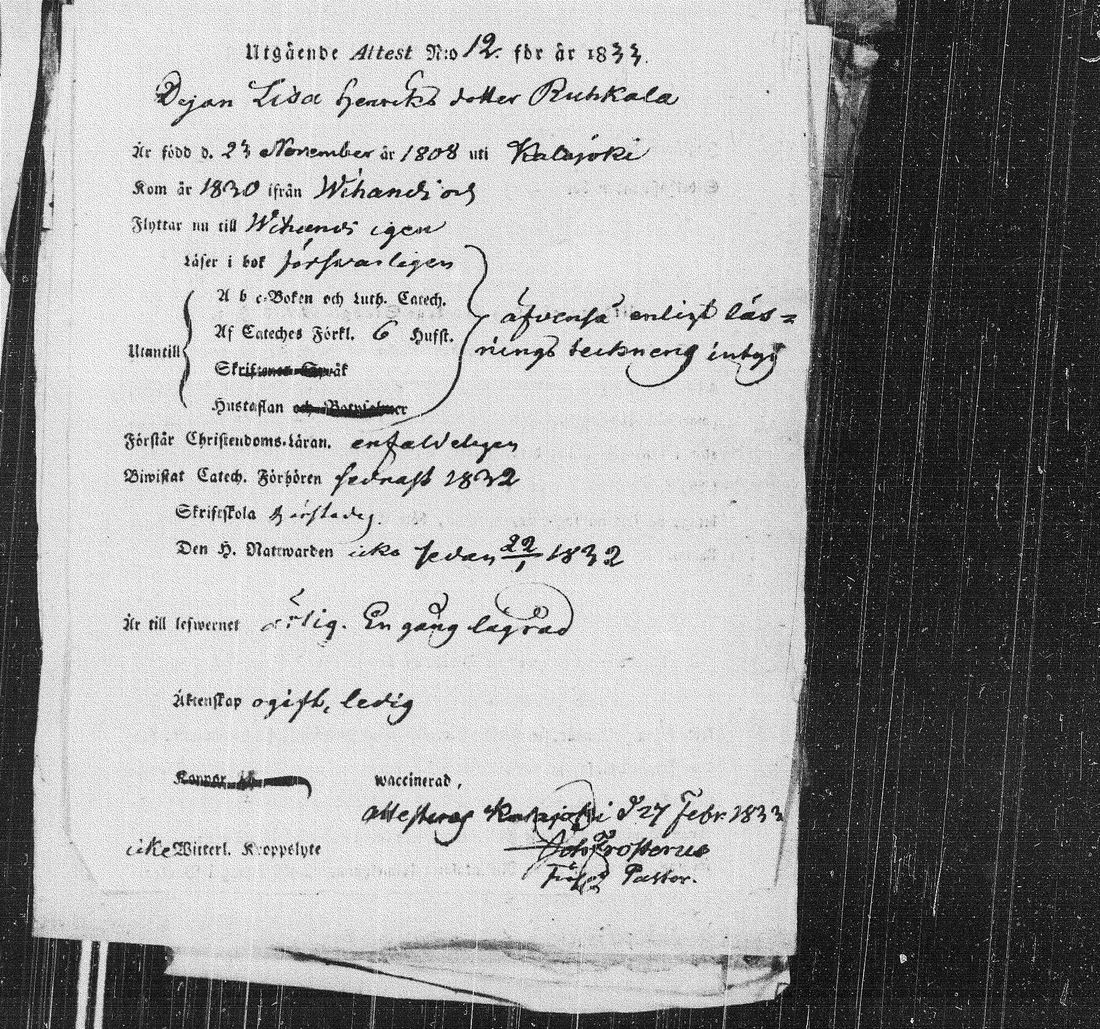 Utgående Attest N:o 12. för år 1833.
Pigan Lisa Henriks dotter Ruhkala
Är född d. 23 November år 1808 uti Kalajoki
Kom år 1830 ifrån Wihandi och
Flyttar nu till Wihandi igen
Läser i bok försvarligen
A b c-Boken och Luth. Catech.
Af Cateches Förkl. 6 Husst.
Utantill
äfvenså enligt läs=
nings teckneng intyg
Hustaflan
Förstår Christendoms-Läran. enfaldeligen
Biwistat Catech. Förhören sednast 1832
Skriftskola
Den H. Nattwarden icke sedan 22/1 1832
Är till lefwernet ärlig. En gång lägrad
Äktenskap ogift, ledig
waccinerad,
attesteras Kalajoki d 27 Febr. 1833
icke Witterl. Kroppslyte
Frosterus
Pastor.